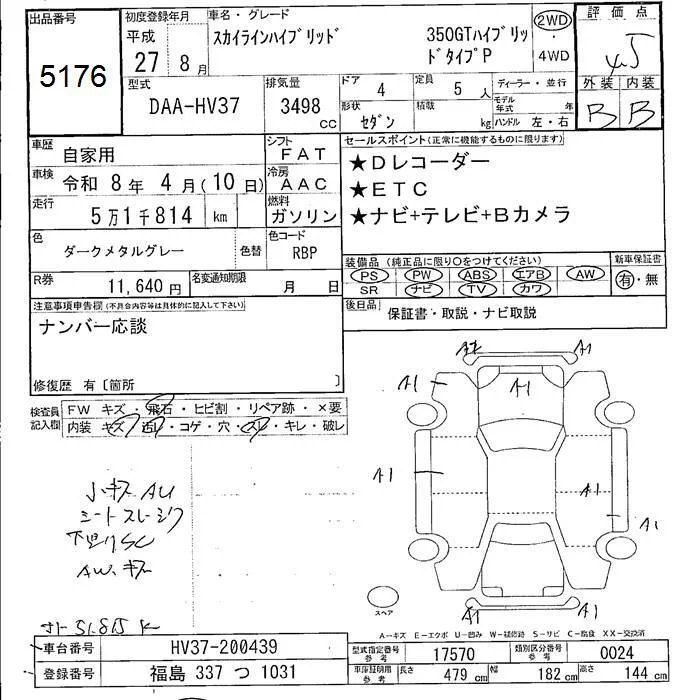 出品番号
5176
初度登録年月
平成
27 8 月
車名・グレード
スカイラインハイブリッド
350GTハイブリッ
ドタイプP
2WD
・
4WD
評価点
4.5
外装 内装
B B
型式
DAA-HV37
排気量
3498
CC
ドア
4
定員
5 人
形状
セダン
積載
kg
ディーラー・並行
モデル
年式 年
ハンドル 左・右
車歴
自家用
シフト
FAT
車検
令和 8年 4月(10日)
冷房
AAC
走行
5万1千814 km
燃料
ガソリン
色
ダークメタルグレー
色替
色コード
RBP
R券
11,640 円
名変通知期限
月 日
セールスポイント(正常に機能するものに限ります)
★Dレコーダー
★ETC
★ナビ+テレビ+Bカメラ
装備品 (純正品に限り○をつけてください)
新車保証書
PS PW ABS エアB AW
SR ナビ TV カワ
有・無
後日品
保証書・取説・ナビ取説
注意事項申告欄(不具合内容等は具体的に記入して下さい)
ナンバー応談
修復歴 有〔箇所 〕
検査員
記入欄
FW キズ・飛石・ヒビ割・リペア跡・×要
内装 キズ・汚レ・コゲ・穴・スレ・キレ・破レ
小キズ AU
シートスレ・シワ
下回りSC
AW、キズ
A2 A1
A1 A1
A1
A1
A1
A1 A1
スペア
A-キズ E-エクボ U-凹み W-補修跡 S-サビ C-腐食 XX-交換済
車台番号
HV37-200439
登録番号
福島 337 つ 1031
型式指定番号
参考
17570
類別区分番号
参考
0024
車庫証明用
参考
長さ
479 cm
幅
182 cm
高さ
144 cm